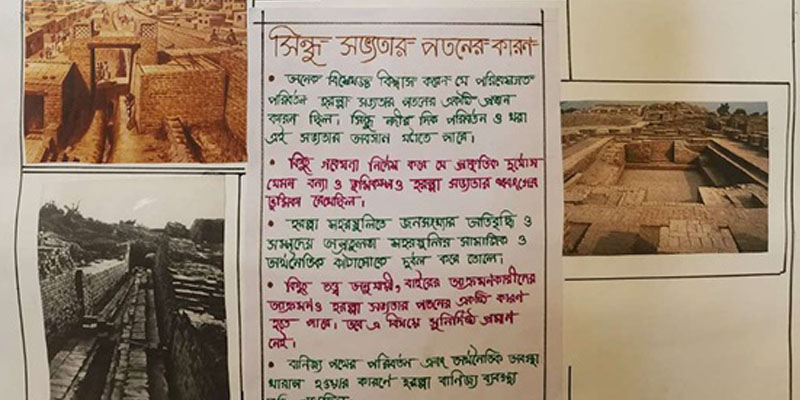 সিন্ধু সভ্যতার পতনের কারণ
• অনেক বিশেষজ্ঞ বিশ্বাস করেন যে পরিবেশগত
পরিবর্তন হরপ্পা সভ্যতার পতনের একটি প্রধান
কারন ছিল। সিন্ধু নদীর দিক পরিবর্তন ও খরা
এই সভ্যতার অবসান ঘটাতে পারে।
• কিছু গবেষনা নির্দেশ করে যে প্রাকৃতিক দুর্যোগ
যেমন বন্যা ও ভূমিকম্পও হরপ্পা সভ্যতার ধ্বংসের
ভূমিকা রেখেছিল।
• হরপ্পা শহরগুলিতে জনসংখ্যার অতিবৃদ্ধি ও
সম্পদের অপ্রতুলতা শহরগুলির সামাজিক ও
অর্থনৈতিক কাঠামোকে দুর্বল করে তোলে।
• কিছু তত্ত্ব অনুযায়ী, বাইরের আক্রমনকারীদের
আক্রমনও হরপ্পা সভ্যতার পতনের একটি কারণ
হতে পারে। তবে এ বিষয়ে সুনির্দিষ্ট প্রমাণ
নেই।
• বানিজ্য পথের পরিবর্তন এবং অর্থনৈতিক ব্যবস্থা
খারাপ হওয়ার কারণে হরপ্পা বানিজ্য ব্যবস্থা